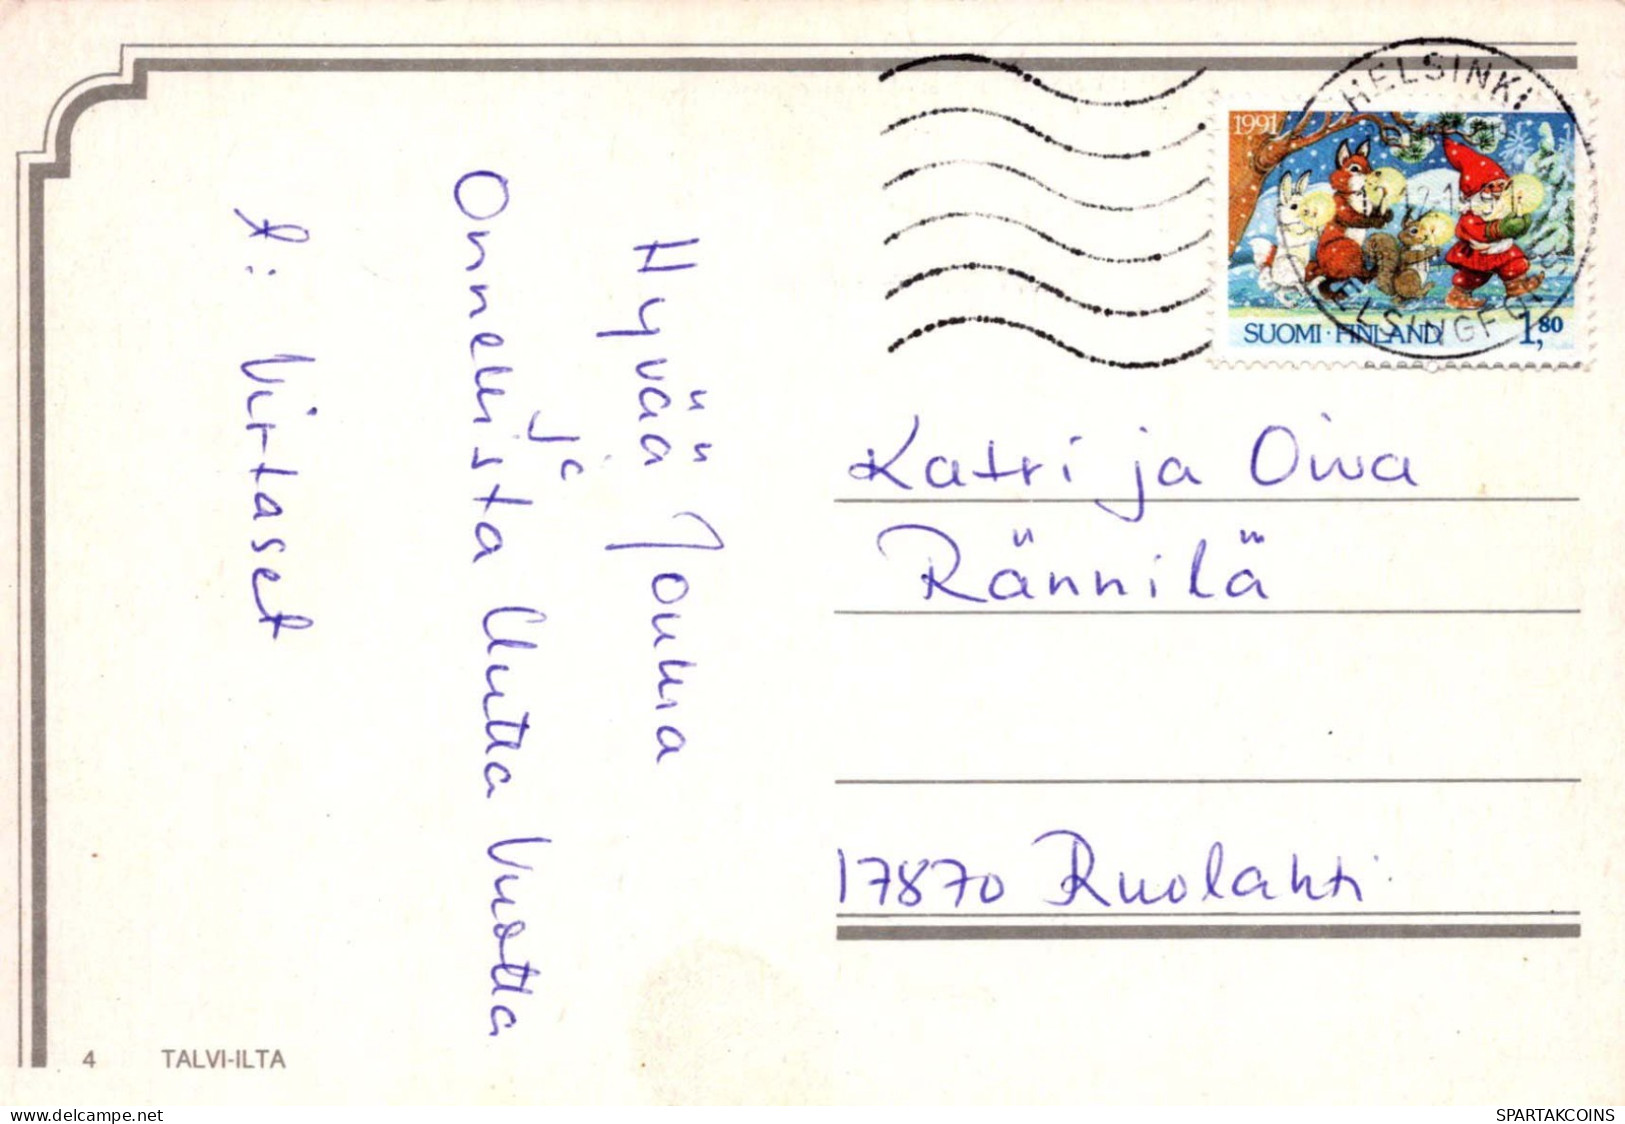 Hyvää Joulua
ja
Onnellista Uutta Vuotta
t: Virtaset
HELSINKI
12.12.1991
HELSINGFORS
1991
SUOMI · FINLAND 1,80
Katri ja Oiva
Rännilä
17870 Ruolahti
4 TALVI-ILTA
www.delcampe.net
SPARTAKCOINS